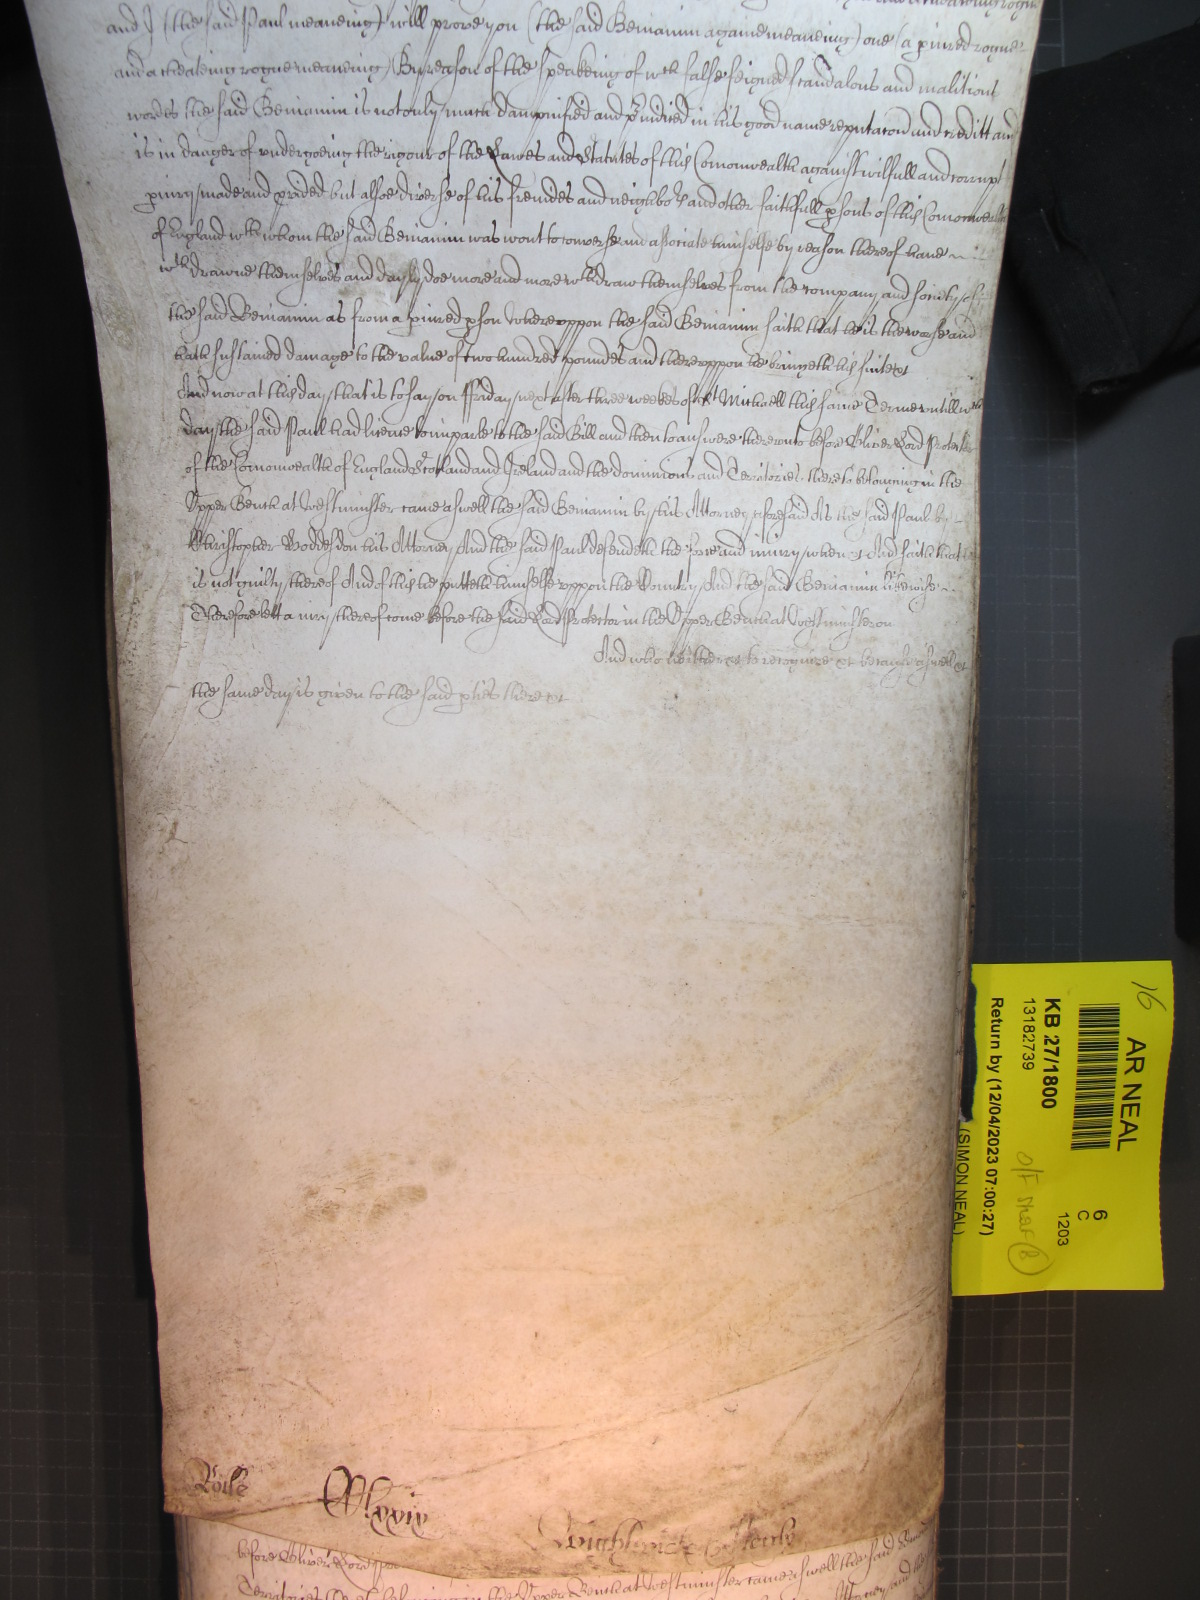 and I (the said Paul meaneing) will prove you (the said Beniamin againe meaneing) one (a piured rogue
and a cheateing rogue meaneing) By reason of the speakeing of wch false feigned scandalous and malitious
wordes the said Beniamin is not only much dampnified and piudiced in his good name reputacon and creditt and
is in danger of undergoeing the rigour of the Lawes and Statutes of this Comonwealth against wilfull and corrupt
piury made and pvided but alsoe diverse of his freindes and neighbors and other faithfull psons of this Comonwealth
of England wth whom the said Beniamin was wont to converse and associate himselfe by reason thereof have
wthdrawne themselves and dayly doe more and more wthdraw themselves from the company and society of
the said Beniamin as from a piured pson Whereuppon the said Beniamin saith that he is the worse and
hath sustained damage to the value of two hundred poundes and thereuppon he bringeth his suite &c
And now at this day that is to say on Ffriday next after three weekes of St Michaell this same Terme untill wch
day the said Paul had licence to imparle to the said Bill and then to answere thereunto before Oliver Lord Protector
of the Comonwealth of England Scotland and Ireland and the dominions and Territories thereto belonging in the
Upper Bench at Westminster came aswell the said Beniamin by his Attorney aforesaid As the said Paul by
Christopher Boddesdon his Attorney And the said Paul defendeth the force and iniury when &c And saith that
is not guilty thereof And of this he putteth himselfe uppon the Country And the said Beniamin likewise
Therefore lett a iury thereof come before the said Lord Protector in the Upper Bench at Westminster on
And who neither &c to recognize &c because aswell &c
the same day is given to the said pties there &c
Rolle
before Oliver Lord
Territories thereto belonging in the Upper Bench at Westminster came aswell the said
16
AR NEAL
KB 27/1800
13182739
Return by (12/04/2023 07:00:27)
(SIMON NEAL)
6
C
1203